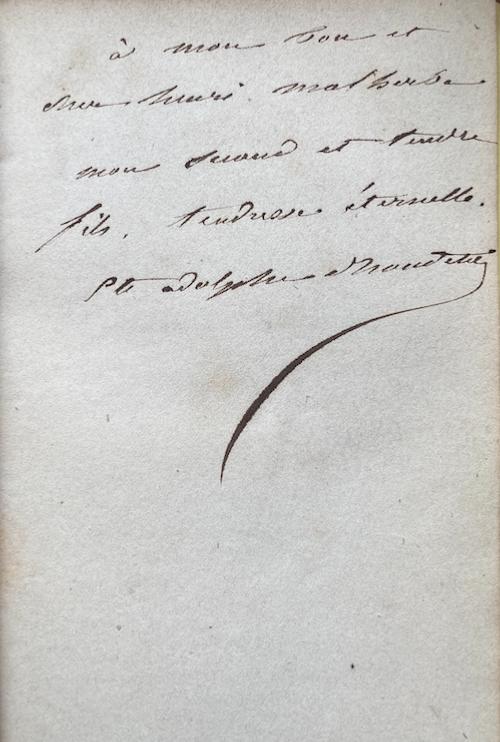 à mon bon et
cher henri malherbe
mon second et tendre
fils. tendresse éternelle.
Cte adolphe d'houdetot